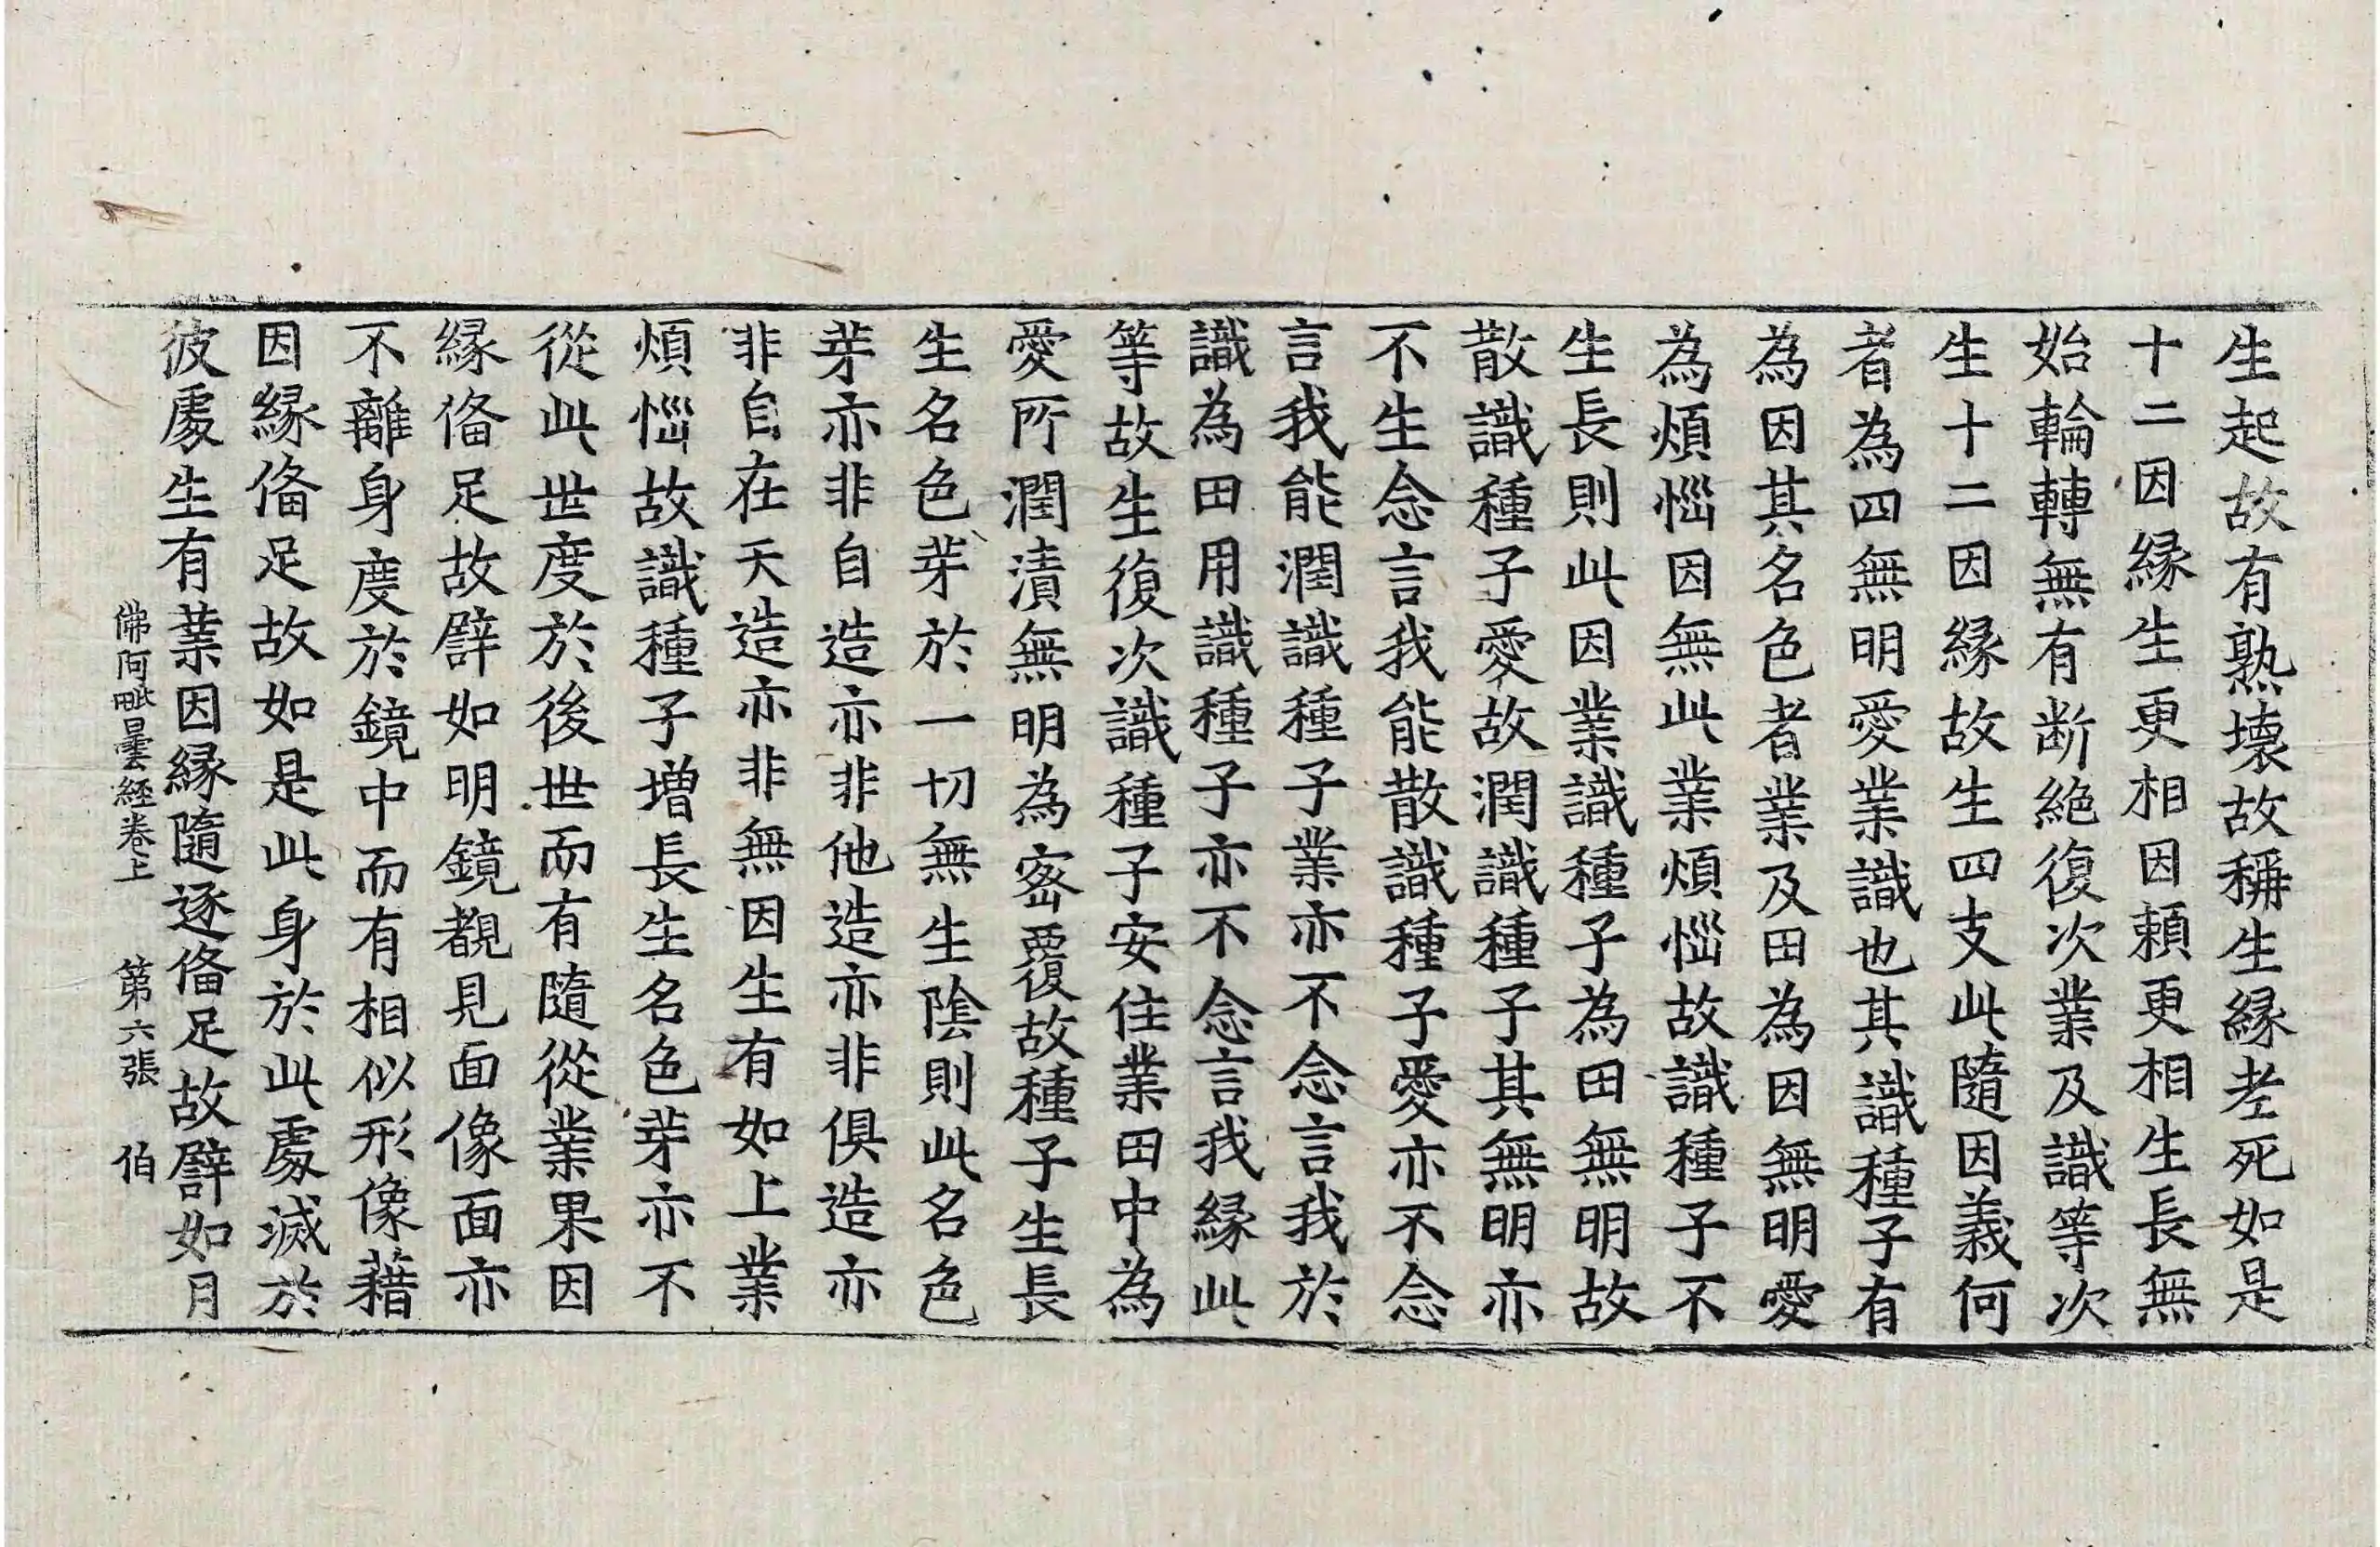 生起故有熟壞故稱生緣老死如是
十二因緣生更相因頼更相生長無
始輪轉無有断絶復次業及識等次
生十二因緣故生四支此隨因義何
者為四無明愛業識也其識種子有
為因其名色者業及田為因無明愛
為煩惱因無此業煩惱故識種子不
生長則此因業識種子為田無明故
散識種子愛故潤識種子其無明亦
不生念言我能散識種子愛亦不念
言我能潤識種子業亦不念言我於
識為田用識種子亦不念言我緣此
等故生復次識種子安住業田中為
愛所潤漬無明為宻覆故種子生長
生名色芽於一切無生陰則此名色
芽亦非自造亦非他造亦非俱造亦
非自在天造亦非無因生有如上業
煩惱故識種子增長生名色芽亦不
從此世度於後世而有隨從業果因
緣俻足故譬如明鏡覩見面像面亦
不離身度於鏡中而有相似形像藉
因緣俻足故如是此身於此處滅於
彼處生有業因緣隨逐俻足故譬如月
佛阿毗曇經卷上　第六張　伯